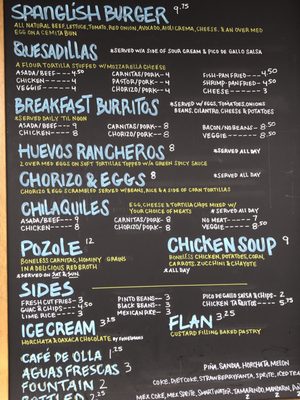 SPANGLISH BURGER 9.75
ALL NATURAL BEEF, LETTUCE, TOMATO, RED ONION, AVOCADO, AIOLI CREMA, CHEESE, & AN OVER MED
EGG ON A CEMITA BUN
QUESADILLAS * SERVED W/A SIDE OF SOUR CREAM & PICO DE GALLO SALSA
A FLOUR TORTILLA STUFFED W/MOZZARELLA CHEESE
ASADA/BEEF---4.50 CARNITAS/PORK-4 FISH-PAN FRIED---4.50
CHICKEN---4 PASTOR/PORK-4 SHRIMP-PAN FRIED---4.50
VEGGIE---4 CHORIZO/PORK-4 CHEESE---3
BREAKFAST BURRITOS * SERVED W/ EGGS, TOMATOES, ONIONS
* SERVED DAILY 'TIL NOON BEANS, CILANTRO, CHEESE & POTATOES
ASADA/BEEF---9 CARNITAS/PORK-8 BACON/NO BEANS-8.50
CHICKEN---8 CHORIZO/PORK-8 VEGGIE---8.50
HUEVOS RANCHEROS 8 * SERVED ALL DAY
2 OVER MED EGGS ON SOFT TORTILLAS TOPPED W/A GREEN SPICY SAUCE
CHORIZO & EGGS 8 * SERVED ALL DAY
CHORIZO & EGG SCRAMBLED SERVED W/BEANS, RICE & A SIDE OF CORN TORTILLAS
CHILAQUILES EGG, CHEESE & TORTILLA CHIPS MIXED W/
YOUR CHOICE OF MEATS * SERVED ALL DAY
ASADA/BEEF---9 CARNITAS/PORK-8 NO MEAT---7
CHICKEN---8 CHORIZO/PORK-8 VEGGIE---8.50
POZOLE 12 CHICKEN SOUP 9
BONELESS CARNITAS, HOMINY GRAINS BONELESS CHICKEN, POTATOES, CORN,
IN A DELICIOUS RED BROTH CARROTS, ZUCCHINI & CHAYOTE
* SERVED ON SAT & SUN * ALL DAY
SIDES
FRESH CUT FRIES-3 PINTO BEANS-3 PICO DE GALLO SALSA & CHIPS-2
GUAC & CHIPS---4.50 BLACK BEANS-3 CHICKEN TAQUITOS---5.75
LIME RICE---3 MEXICAN RICE-3
ICE CREAM 3.25 FLAN 3.25
HORCHATA & OAXACA CHOCOLATE CUSTARD FILLING BAKED PASTRY
CAFÉ DE OLLA 1.25
AGUAS FRESCAS 3 PIÑA, SANDIA, HORCHATA, MELON
FOUNTAIN 2 COKE, DIET COKE, STRAWBERRY FANTA, SPRITE, ICED TEA
BOTTLED 2.25 MEX COKE, MEX SPRITE, SMARTWATER, TAMARINDO, MANDARIN,